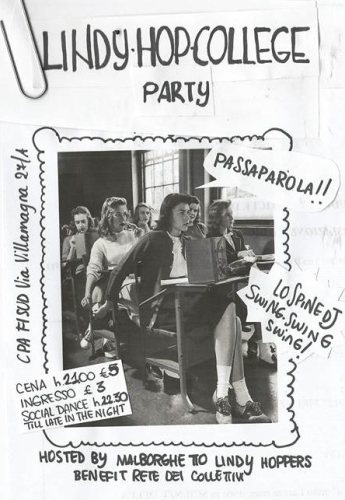 LINDY·HOP·COLLEGE
PARTY
CPA FI SUD Via Villamagna 27/A
PASSAPAROLA!!
LO SPINE DJ
SWING, SWING
SWING!
CENA h 21.00 £5
INGRESSO £ 3
SOCIAL DANCE h 22.30
'TILL LATE IN THE NIGHT
HOSTED BY MALBORGHETTO LINDY HOPPERS
BENEFIT RETE DEI COLLETTIVI